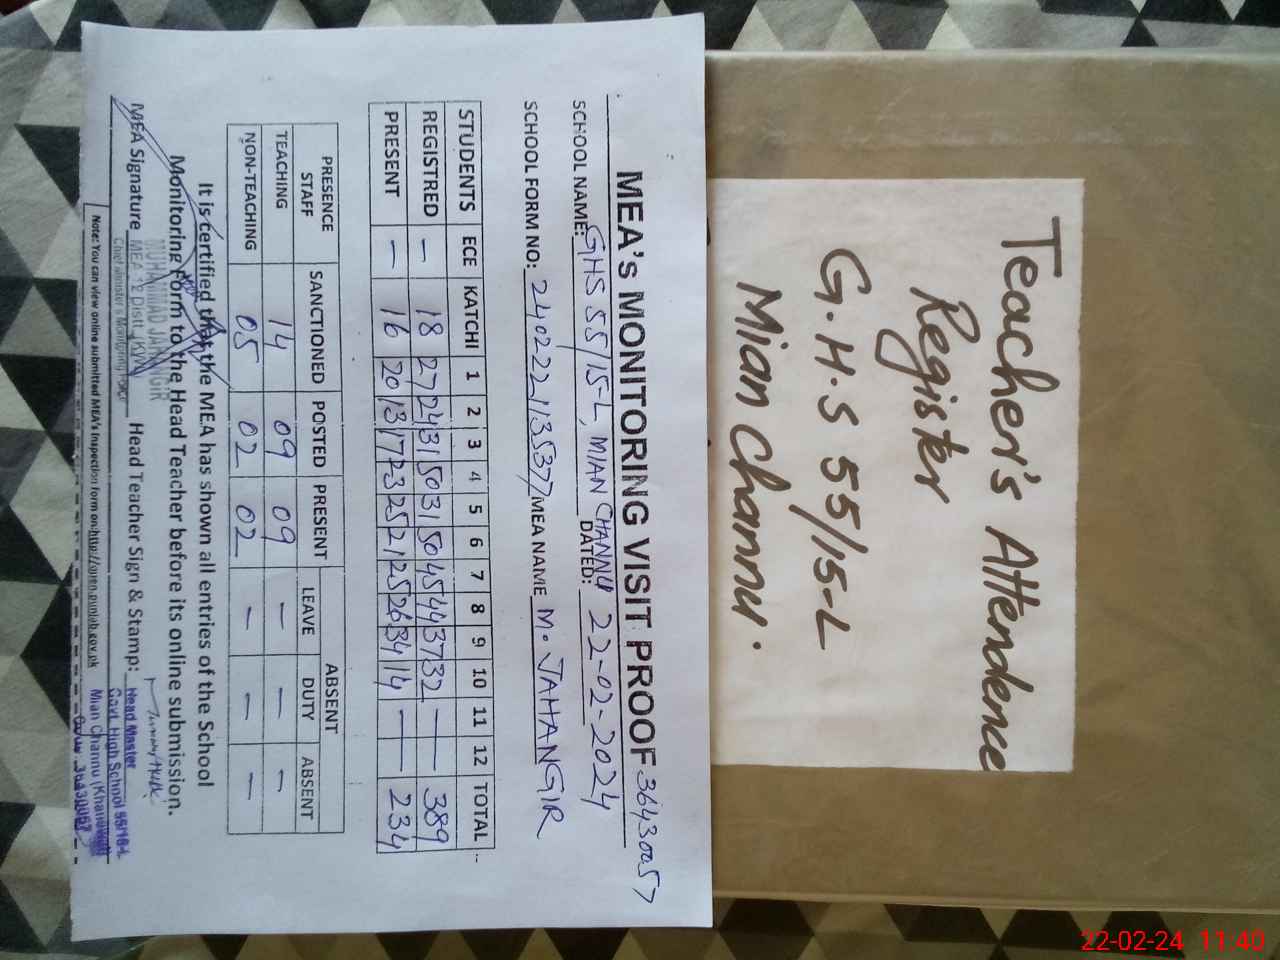 MEA's MONITORING VISIT PROOF 36430057
SCHOOL NAME: GHS 55/15-L, MIAN CHANNU DATED: 22-02-2024
SCHOOL FORM NO: 240222113537 MEA NAME M. JAHANGIR
STUDENTS ECE KATCHI 1 2 3 4 5 6 7 8 9 10 11 12 TOTAL
REGISTRED — 18 27 24 31 50 31 50 45 44 37 32 — — 389
PRESENT — 16 20 13 17 23 25 21 25 26 34 14 — — 234
PRESENCE STAFF SANCTIONED POSTED PRESENT ABSENT
LEAVE DUTY ABSENT
TEACHING 14 09 09 — — —
NON-TEACHING 05 02 02 — — —
It is certified that the MEA has shown all entries of the School
Monitoring Form to the Head Teacher before its online submission.
MUHAMMAD JAHANGIR
MEA Signature MEA'S Distt. KWL Head Teacher Sign & Stamp: Head Master
Chief Minister's Monitoring Force
Govt. High School 55/15-L
Mian Channu (Khanewal)
Note: You can view online submitted MEA's Inspection form on:http://open.punjab.gov.pk
Teacher's Attendence
Register
G.H.S 55/15-L
Mian Channu.
22-02-24 11:40